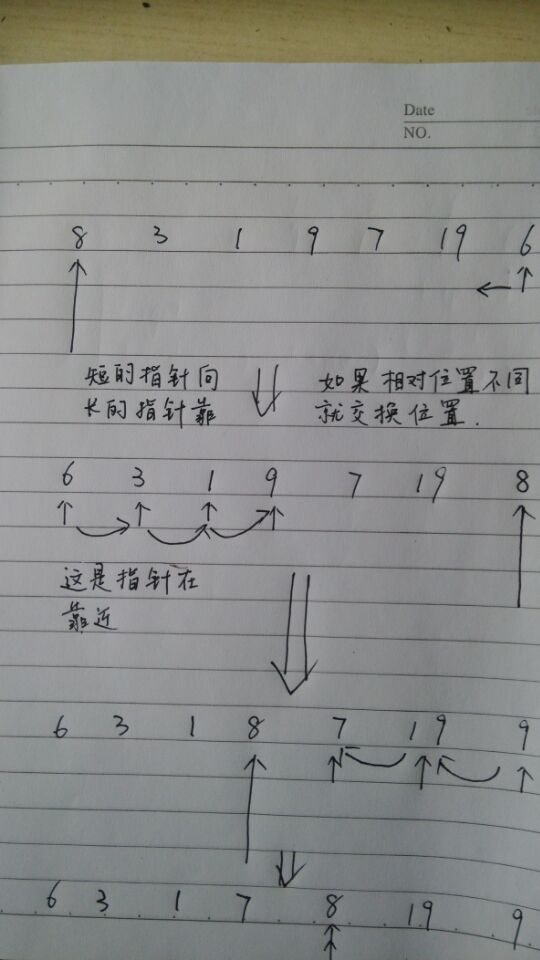 Date
NO.
8 3 1 9 7 19 6
短的指针向
长的指针靠
如果相对位置不同
就交换位置.
6 3 1 9 7 19 8
这是指针在
靠近
6 3 1 8 7 19 9
6 3 1 7 8 19 9